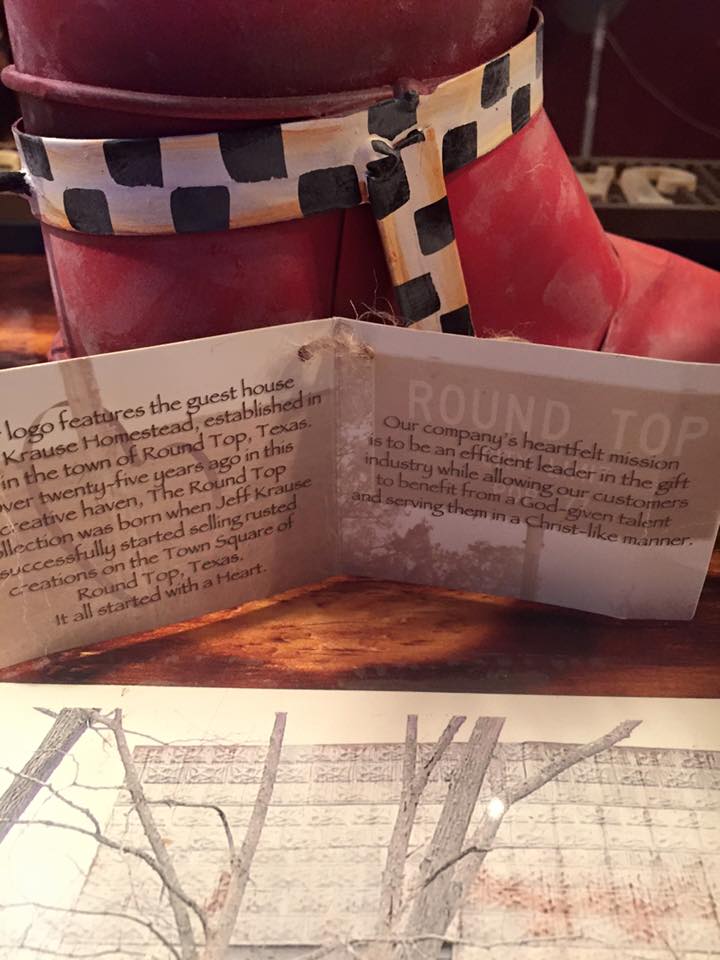 logo features the guest house
Krause Homestead, established in
in the town of Round Top, Texas.
over twenty-five years ago in this
creative haven, The Round Top
Collection was born when Jeff Krause
successfully started selling rusted
creations on the Town Square of
Round Top, Texas.
It all started with a Heart.
ROUND TOP
Our company's heartfelt mission
is to be an efficient leader in the gift
industry while allowing our customers
to benefit from a God-given talent
and serving them in a Christ-like manner.